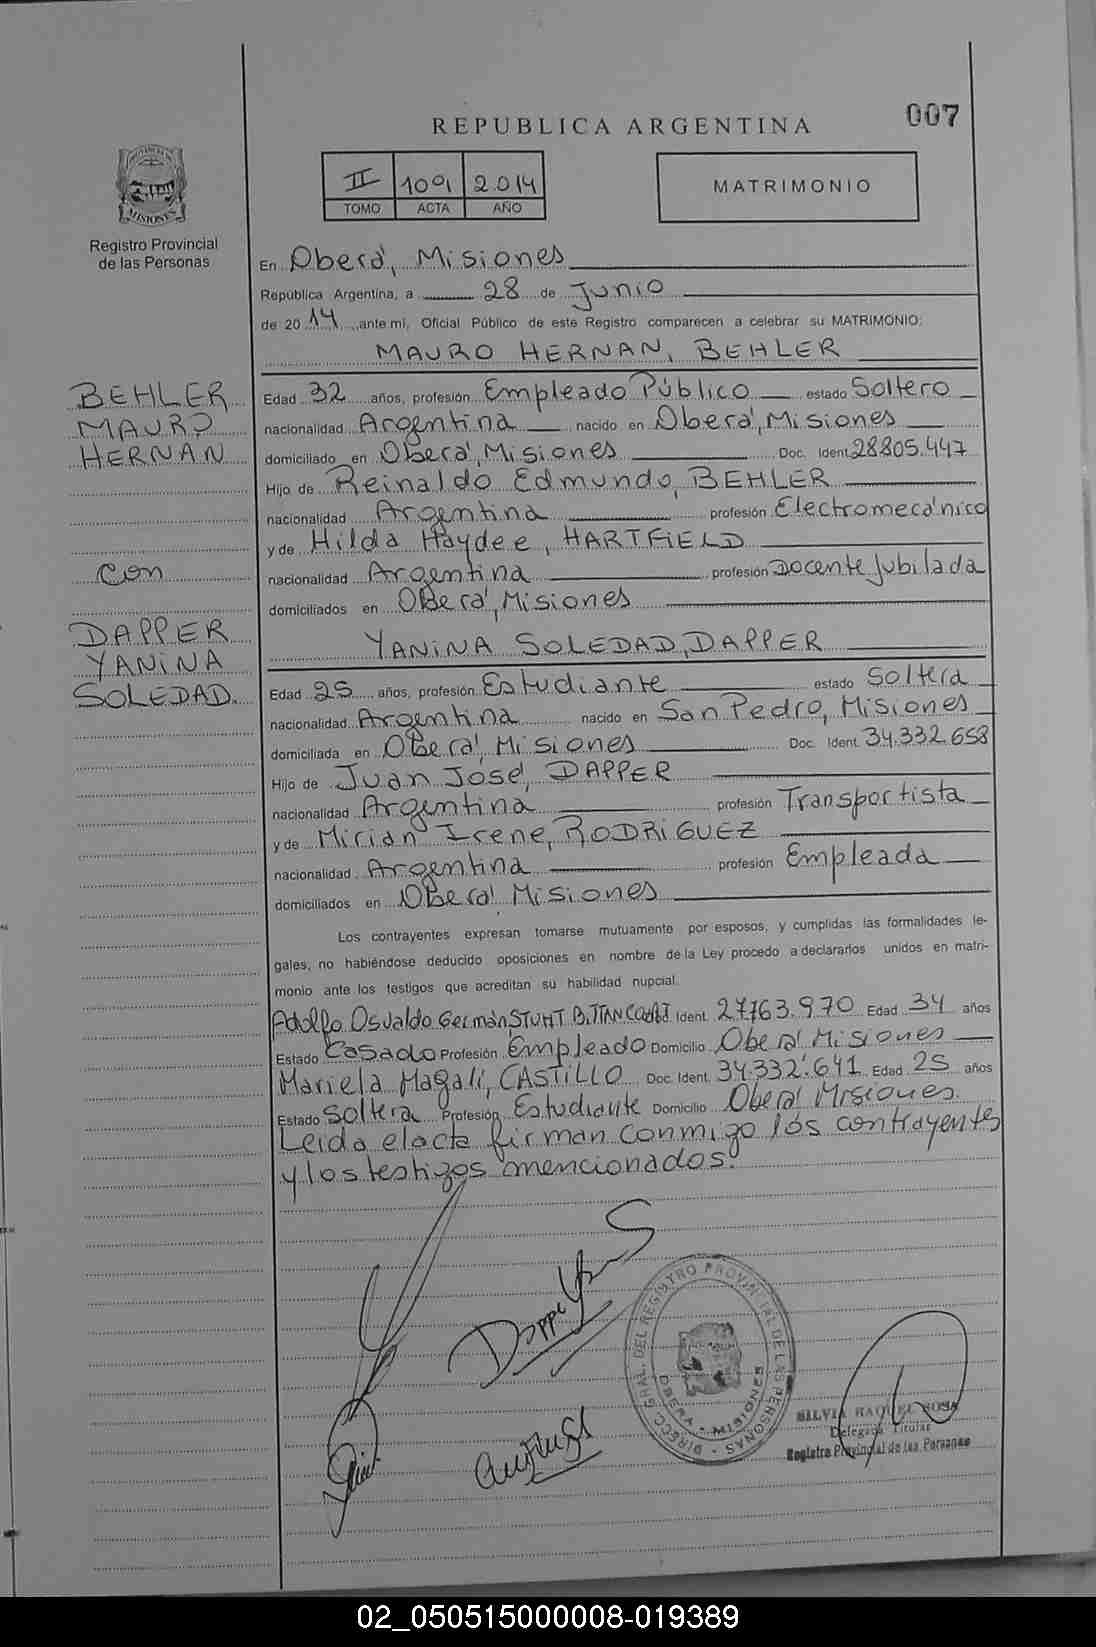 007
REPUBLICA ARGENTINA
II 109 2.014
TOMO ACTA AÑO
MATRIMONIO
PROVINCIA DE
MISIONES
Registro Provincial
de las Personas
En Oberá, Misiones
República Argentina, a 28 de Junio
de 20 14 ante mí, Oficial Público de este Registro comparecen a celebrar su MATRIMONIO:
MAURO HERNAN, BEHLER
BEHLER
MAURO
HERNAN
con
DAPPER
YANINA
SOLEDAD.
Edad 32 años, profesión Empleado Público estado Soltero
nacionalidad Argentina nacido en Oberá, Misiones
domiciliado en Oberá, Misiones Doc. Ident 28805.447
Hijo de Reinaldo Edmundo, BEHLER
nacionalidad Argentina profesión Electromecánico
y de Hilda Haydee, HARTFIELD
nacionalidad Argentina profesión Docente Jubilada
domiciliados en Oberá, Misiones
YANINA SOLEDAD, DAPPER
Edad 25 años, profesión Estudiante estado Soltera
nacionalidad Argentina nacido en San Pedro, Misiones
domiciliada en Oberá, Misiones Doc. Ident. 34.332.658
Hijo de Juan José, DAPPER
nacionalidad Argentina profesión Transportista
y de Mirian Irene, RODRIGUEZ
nacionalidad Argentina profesión Empleada
domiciliados en Oberá Misiones
Los contrayentes expresan tomarse mutuamente por esposos, y cumplidas las formalidades le-
gales, no habiéndose deducido oposiciones en nombre de la Ley procedo a declararlos unidos en matri-
monio ante los testigos que acreditan su habilidad nupcial.
Adolfo Osvaldo Germán, Ident. 27763.970 Edad 34 años
Estado Casado Profesión Empleado Domicilio Oberá Misiones
Mariela Magalí, CASTILLO Doc. Ident. 34.332.641 Edad 25 años
Estado Soltera Profesión Estudiante Domicilio Oberá Misiones.
Leida el acta firman conmigo los contrayentes
y los testigos mencionados.
Dapper
DIRECC. GRAL. DEL REGISTRO PROVINCIAL DE LAS PERSONAS
OBERA - MISIONES
SILVIA RAQUEL SOSA
Delegada Titular
Registro Provincial de las Personas
02_050515000008-019389